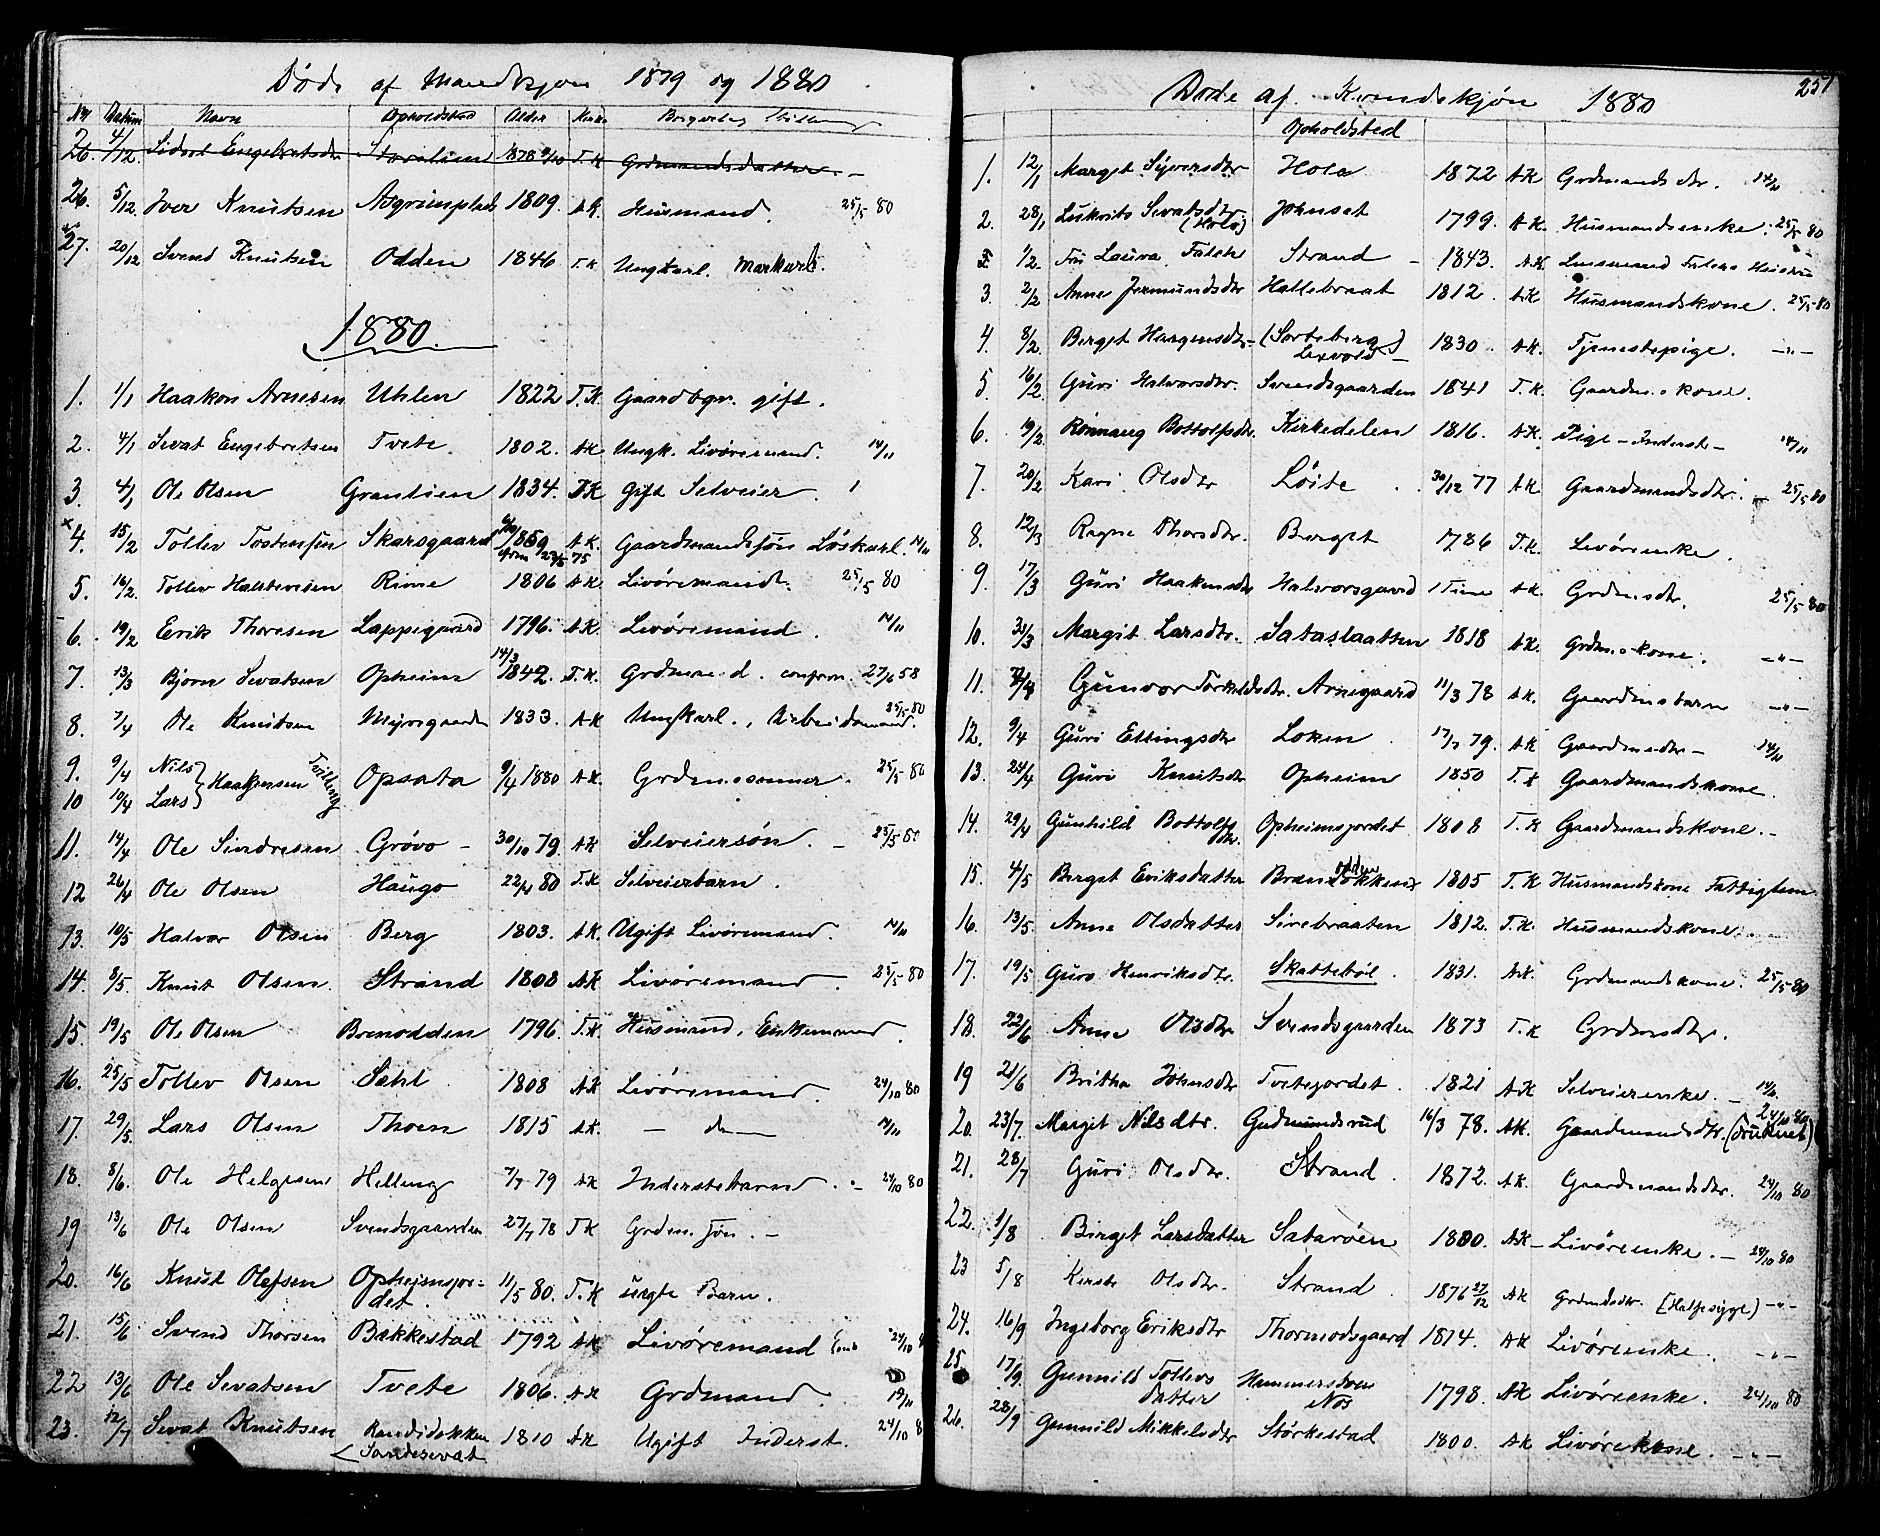 Døde af Mandkjøn 1879 og 1880
No Datum Navn Opholdsted Alder Kirke Borgerlig Stilling
26. 4/12. Sidsel Engebretsdtr T.K Grdmandsdatter. –
26. 5/12. Iver Knutsen Asgrimsplads 1809. A.K. Husmand. 25/5 80
27. 20/12 Svend Knutsen Odden 1846 T.K Ungkarl.
1880.
1. 1/1 Haakon Arnesen Uhlen 1822 T.K Gaardbgr. gift.
2. 4/1 Sevat Engebretsen Tvete 1802. A.K Ungk. Livøremand. 14/11
3. 4/1 Ole Olsen Grønlien 1834. T.K Gift Selveier.
4. 15/2 Tollev Tostensen Skarsgaard 1859 A.K. Gaardmandssøn Løskarl. 14/11
5. 16/2. Tollev Halstensen Rime 1806 A.K Livøremand. 25/5 80
6. 19/2 Erik Thoresen Lappegaard 1796. A.K. Livøremand. 14/11
7. 13/3 Bjørn Sevatsen Opheim 14/3 1842. T.K. Grdmand. confirm. 27/6 58
8. 7/4 Ole Knutsen Myrsgaarden 1833. A.K Ungkarl., Arbeidsmand. 25/5 80
9. 9/4 Nils } Haakensen Tvilling Opsata 9/4 1880 A.K. Grdm.sønner. 25/5 80
10 10/4 Lars }
11. 14/4 Ole Sindresen Grøvo – 30/10 79 A.K Selveiersøn. – 25/5 80
12 26/4 Ole Olsen Haugo 22/4 80 T.K Selveierbarn.
13. 10/5 Halvor Olsen Berg 1803. A.K. Ugift Livøremand. 14/11
14. 8/5. Knut Olsen. Strand 1808 A.K Livøremand. 25/5 80
15. 19/5 Ole Olsen Brenodden 1796. T.K Husmand, Enkemand.
16. 25/5 Tollev Olsen Sehl 1808 A.K Livøremand. 24/10 80
17. 29/5. Lars Olsen Thoen 1815 A.K. – do – 14/11
18. 8/6. Ole Helgesen Helling 7/7 79 A.K Inderstebarn. – 24/10 80
19 13/6 Ole Olsen Svendsgaarden 27/7 78 T.K Grdm. søn. –
20. 16/6 Knut Olefsen Opheimsjor=
det. 11/5 80. T.K uegte Barn.
21. 15/6 Svend Thorsen Bakkestad 1792 A.K Livøremand 24/10 8
22 13/6 Ole Sevatsen Tvete 1806. A.K Grdmand. 14/11
23. 12/7 Sevat Knutsen Randidokken
Sandesevat 1810 A.K Ugift Inderst. 24/10 8
251
Døde af Kvindekjøn 1880
Opholdsted
1. 12/1 Marget Syversdtr Hola 1872 A.K Grdmands dtr. 14/11
2. 28/1 Lukrits Sevatsdtr.
(Holo) Johnset 1799. A.K. Husmandsenke. 25/5 80
1/2. Fru Laura Falch Strand – 1843. A.K. Lensmand Falchs Hustru
3. 2/2 Anne Jermundsdtr Hallebraat 1812. A.K Husmandskone. 25/5 80
4. 8/2. Berget Haagensdtr – (Sorteberg)
1830. A.K. Tjenestepige. – " –
5. 16/2 Guri Halvorsdtr. Svendsgaarden 1841 T.K. Gaardm.s kone.
6. 19/2. Rønnaug Bottolfsdtr. Kirkedelen 1816. A.K. Pige – Inderst – 14/11
7. 20/2 Kari Olsdtr Løite. 30/12 77 A.K Gaardmandsdtr. 25/5 80
8. 12/3 Ragne Thorsdtr. Berget 1786 T.K. Livørenke.
9. 17/3 Guri Haakensdtr Halvorsgaard 1 Time A.K. Grdm.dtr. 25/5 80
10. 31/3 Margit Larsdtr. Sataslaatten 1818 A.K. Grdm.s kone. – " –
11. Gunvor Torkelsdtr. Arnegaard 11/3 78 A.K. Gaardmsbarn – " –
12. 9/4 Guri Ellingsdtr Loken 17/7 79. A.K Gaardmsdtr – 14/11
13. 23/4 Guri Knutsdtr Opheim 1850 T.K Gaardmandskone.
14. 29/4 Gunhild Bottolfs
dtr. Opheimsjordet 1808 T.K Gaardmandskone. –
15. 4/5 Berget Eriksdatter 1805 T.K Husmandskone Fattiglem
16. 13/5 Anne Olsdatter Sirebraaten 1812. T.K. Husmandskone.
17. 19/5 Guro Henriksdtr. Skattebøl 1831. A.K. Grdmandskone. 25/5 80
18. 22/6 Anne Olsdtr Svendsgaarden 1873 T.K Grdmsdtr.
19 21/6 Britha Johnsdtr Tvetejordet. 1821 A.K Selveierenke. – 14/11.
20. 23/7. Margit Nilsdtr. Gudmundsrud 16/3 78. A.K. Gaardmandsdtr. (Druknet) 24/10 80
21. 28/7 Guri Olsdtr. Strand. 1872. A.K. Gaardmandsdtr. 24/10 80
22. 1/8 Birget Larsdatter Satarøen 1800. A.K – Livørenke. – 24/10 80
23 5/8 Kirsti Olsdtr. Strand. 1876 27/12 A.K Grdmdsdtr. (Halsesyge) – " –
24. 16/9 Ingeborg Eriksdtr Thormodsgaard 1814. A.K Livørenke. – " –
25. 17/9. Gunnild Tollevs
datter Hammersbøen
Nos 1798. A.K Livørenke. 24/10 80
26. 28/9 Gunnild Mikkelsdtr Størkestad 1800. A.K Livørekone. – " –